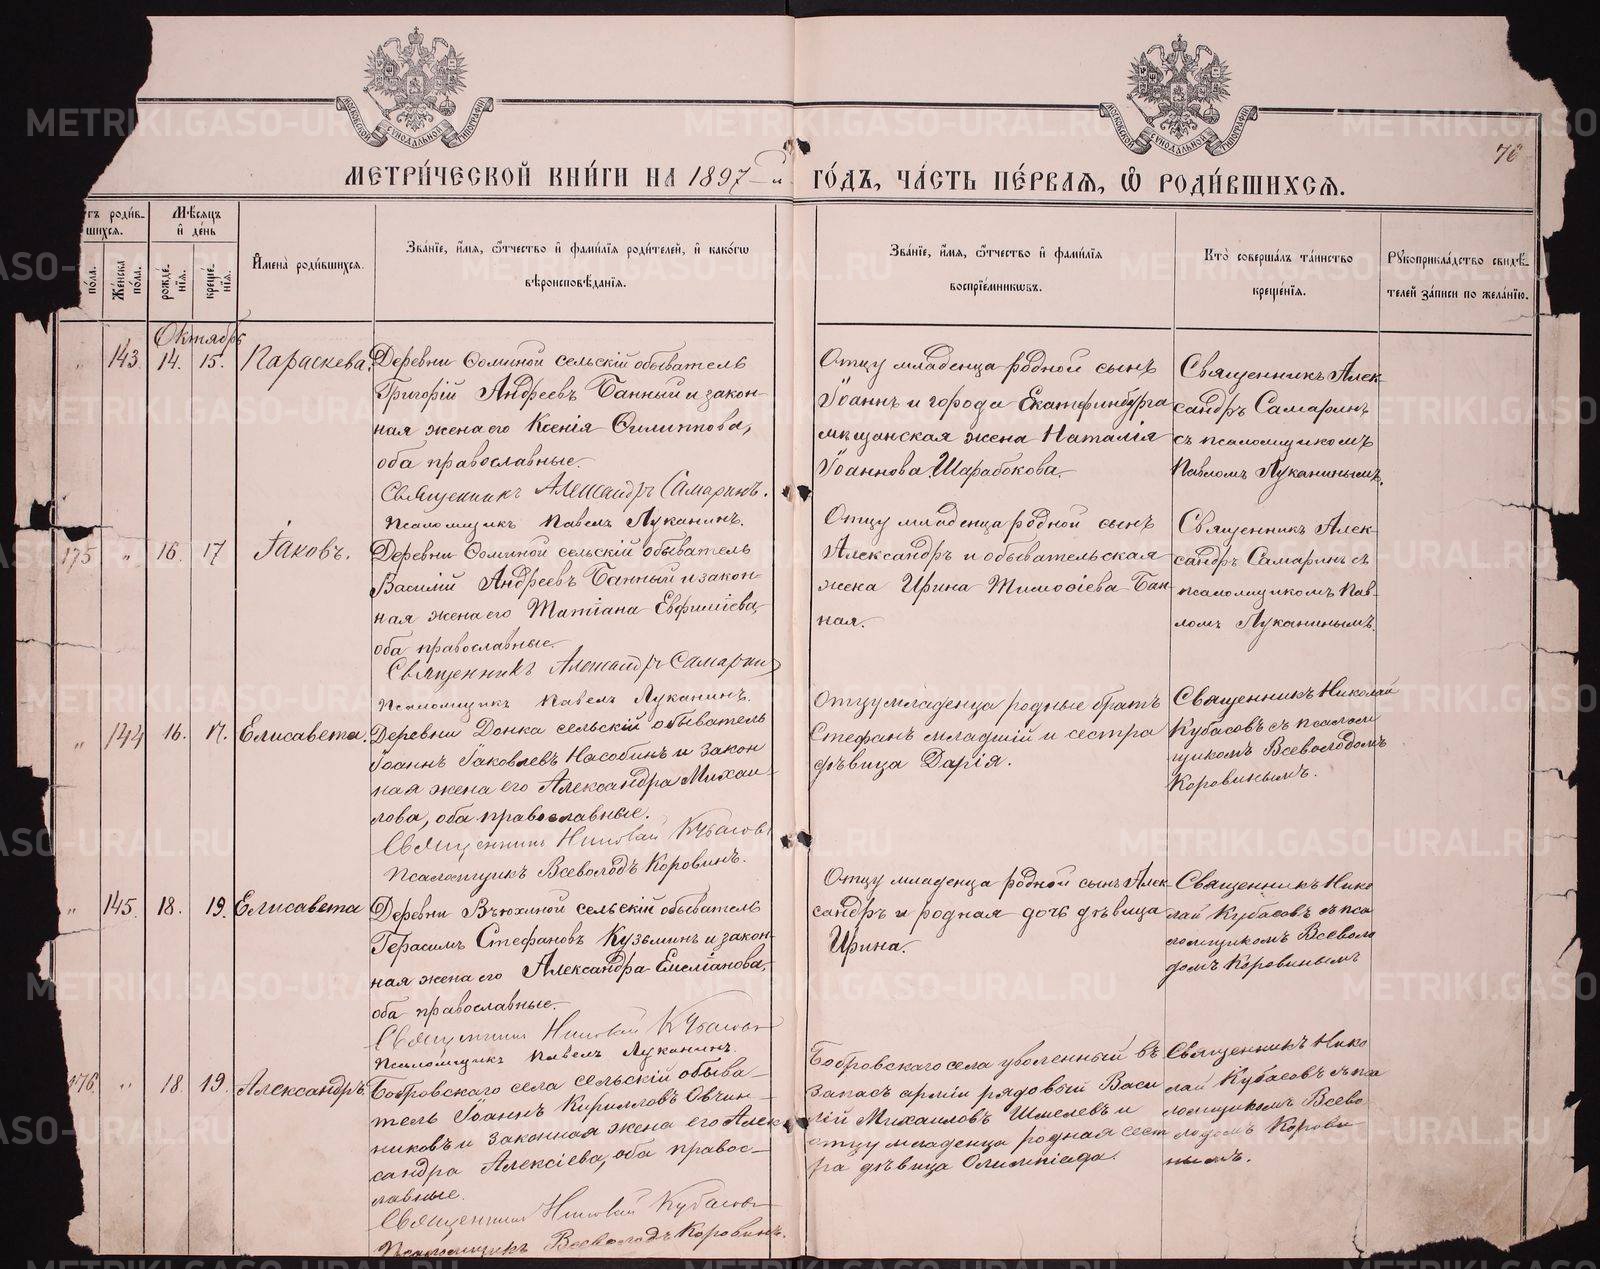 МОСКОВСКОЙ СѴНОДАЛЬНОЙ ТИПОГРАФІИ
МОСКОВСКОЙ СѴНОДАЛЬНОЙ ТИПОГРАФІИ
76
МЕТРИ́ЧЕСКОЙ КНИ́ГИ НА 1897-й ГО́ДЪ, ЧА́СТЬ ПЕ́РВАЯ, Ѿ РОДИ́ВШИХСЯ.
роди́в-
шихся.
по́ла.
Же́нска по́ла.
Мѣсяцъ и де́нь
рожде́нія.
креще́нія.
Имена̀ роди́вшихся.
Зва́нїе, и́мя, ѻ҆́тчество и҆ фами́лїя роди́телей, и҆ како́гѡ
вѣроисповѣ́данїя.
Зва́нїе, и́мя, ѻ҆́тчество и҆ фами́лїя
воспрїе́мниковъ.
Кто̀ соверша́лъ та́инство
креще́нїя.
Рукоприкла́дство свидѣ́-
телей за́писи по жела́нїю.
Октябрь
" 143. 14. 15. Параскева.
Деревни Ѳоминой сельскій обыватель
Григорій Андреевъ Банный и закон-
ная жена его Ксенія Филиппова,
оба православные.
Священникъ Александръ Самаринъ.
Псаломщикъ Павелъ Луканинъ.
Отцу младенца родной сынъ
Іоаннъ и города Екатеринбурга
мѣщанская жена Наталія
Іоаннова Шарабокова.
Священникъ Алек-
сандръ Самаринъ
съ псаломщикомъ
Павломъ Луканинымъ.
175 " 16. 17 Іаковъ.
Деревни Ѳоминой сельскій обыватель
Василій Андреевъ Банный и закон-
ная жена его Татіана Евфиміева,
оба православные.
Священникъ Александръ Самаринъ
Псаломщикъ Павелъ Луканинъ.
Отцу младенца родной сынъ
Александръ и обывательская
жена Ирина Тимоѳіева Бан-
ная.
Священникъ Алек-
сандръ Самаринъ съ
псаломщикомъ Пав-
ломъ Луканинымъ.
" 144 16. 17. Елисавета.
Деревни Донка сельскій обыватель
Іоаннъ Іаковлевъ Насобинъ и закон
ная жена его Александра Михаи-
лова, оба православные.
Священникъ Николай Кубасовъ
Псаломщикъ Всеволодъ Коровинъ.
Отцу младенца родные братъ
Стефанъ младшій и сестра
дѣвица Дарія.
Священникъ Николай
Кубасовъ съ псалом
щикомъ Всеволодомъ
Коровинымъ.
" 145. 18. 19. Елисавета
Деревни Вьюхиной сельскій обыватель
Герасимъ Стефановъ Кузьминъ и закон-
ная жена его Александра Емеліанова,
оба православные.
Священникъ Николай Кубасовъ
Псаломщикъ Павелъ Луканинъ.
Отцу младенца родной сынъ Алек-
сандръ и родная дочь дѣвица
Ирина.
Священникъ Нико
лай Кубасовъ съ пса
ломщикомъ Всеволо
домъ Коровинымъ
176. " 18 19. Александръ.
Бобровскаго села сельскій обыва-
тель Іоаннъ Кирилловъ Овчин-
никовъ и законная жена его Алек
сандра Алексіева, оба правос-
лавные.
Священникъ Николай Кубасовъ
Псаломщикъ Всеволодъ Коровинъ.
Бобровскаго села уволенный въ
запасъ арміи рядовой Васи
лій Михаиловъ Шмелевъ и
отцу младенца родная сест
ра дѣвица Олимпіада.
Священникъ Нико
лай Кубасовъ съ пса
ломщикомъ Всево
лодомъ Корови-
нымъ.
METRIKI.GASO-URAL.RU